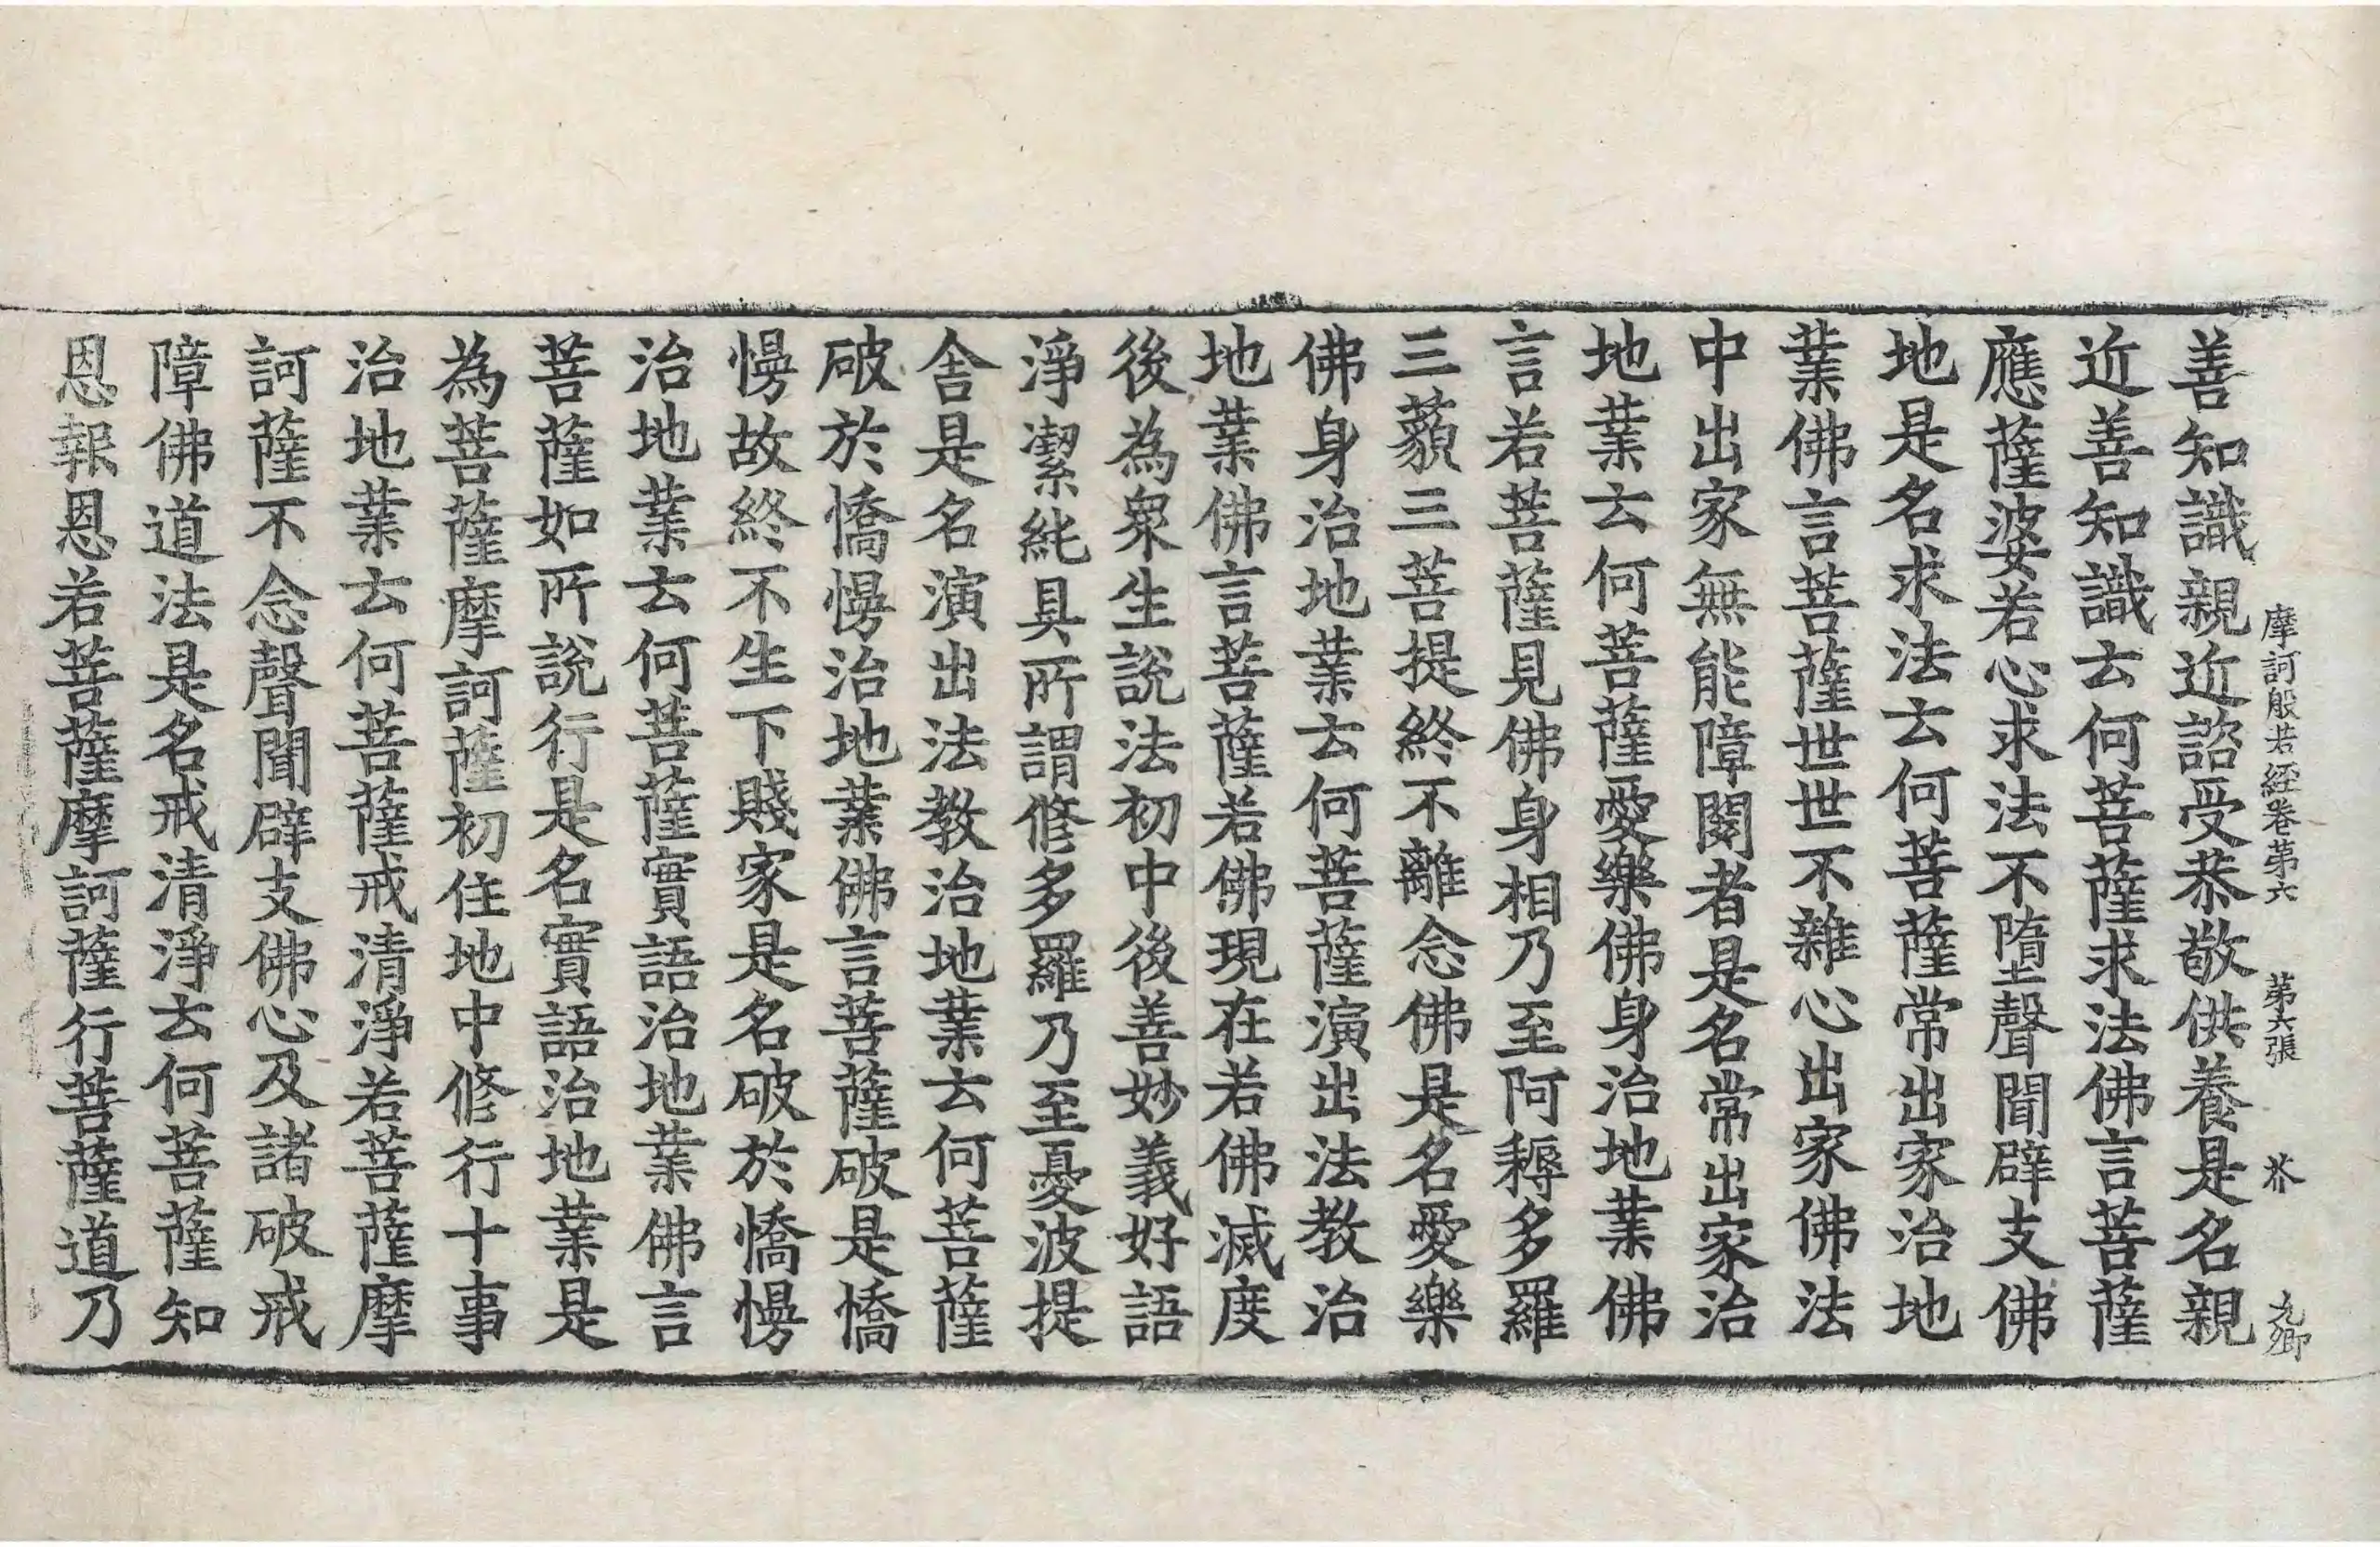 摩訶般若經卷第六 第六張 芥 九卿
善知識親近諮受恭敬供養是名親
近善知識云何菩薩求法佛言菩薩
應薩婆若心求法不墮聲聞辟支佛
地是名求法云何菩薩常出家治地
業佛言菩薩世世不雜心出家佛法
中出家無能障閡者是名常出家治
地業云何菩薩愛樂佛身治地業佛
言若菩薩見佛身相乃至阿耨多羅
三藐三菩提終不離念佛是名愛樂
佛身治地業云何菩薩演出法教治
地業佛言菩薩若佛現在若佛滅度
後為衆生說法初中後善妙義好語
淨潔純具所謂修多羅乃至憂波提
舍是名演出法教治地業云何菩薩
破於憍慢治地業佛言菩薩破是憍
慢故終不生下賤家是名破於憍慢
治地業云何菩薩實語治地業佛言
菩薩如所說行是名實語治地業是
為菩薩摩訶薩初住地中修行十事
治地業云何菩薩戒清淨若菩薩摩
訶薩不念聲聞辟支佛心及諸破戒
障佛道法是名戒清淨云何菩薩知
恩報恩若菩薩摩訶薩行菩薩道乃